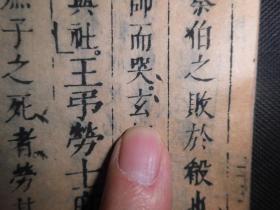 秦伯之敗於殽也
師而哭。玄
與社。王弔勞士
廡子之死者勞其